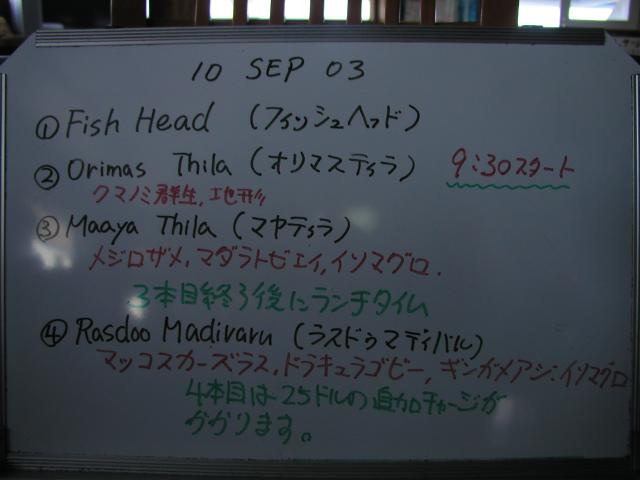 10 SEP 03
① Fish Head (フィッシュヘッド)
② Orimas Thila (オリマスティラ) 9:30スタート
クマノミ群生, 地形
③ Maaya Thila (マヤティラ)
メジロザメ, マダラトビエイ, イソマグロ.
3本目終了後にランチタイム
④ Rasdoo Madivaru (ラスドゥマディバル)
マッコスカーズラス, ドラキュラゴビー, ギンガメアジ. イソマグロ
4本目は25ドルの追加チャージが
かかります。